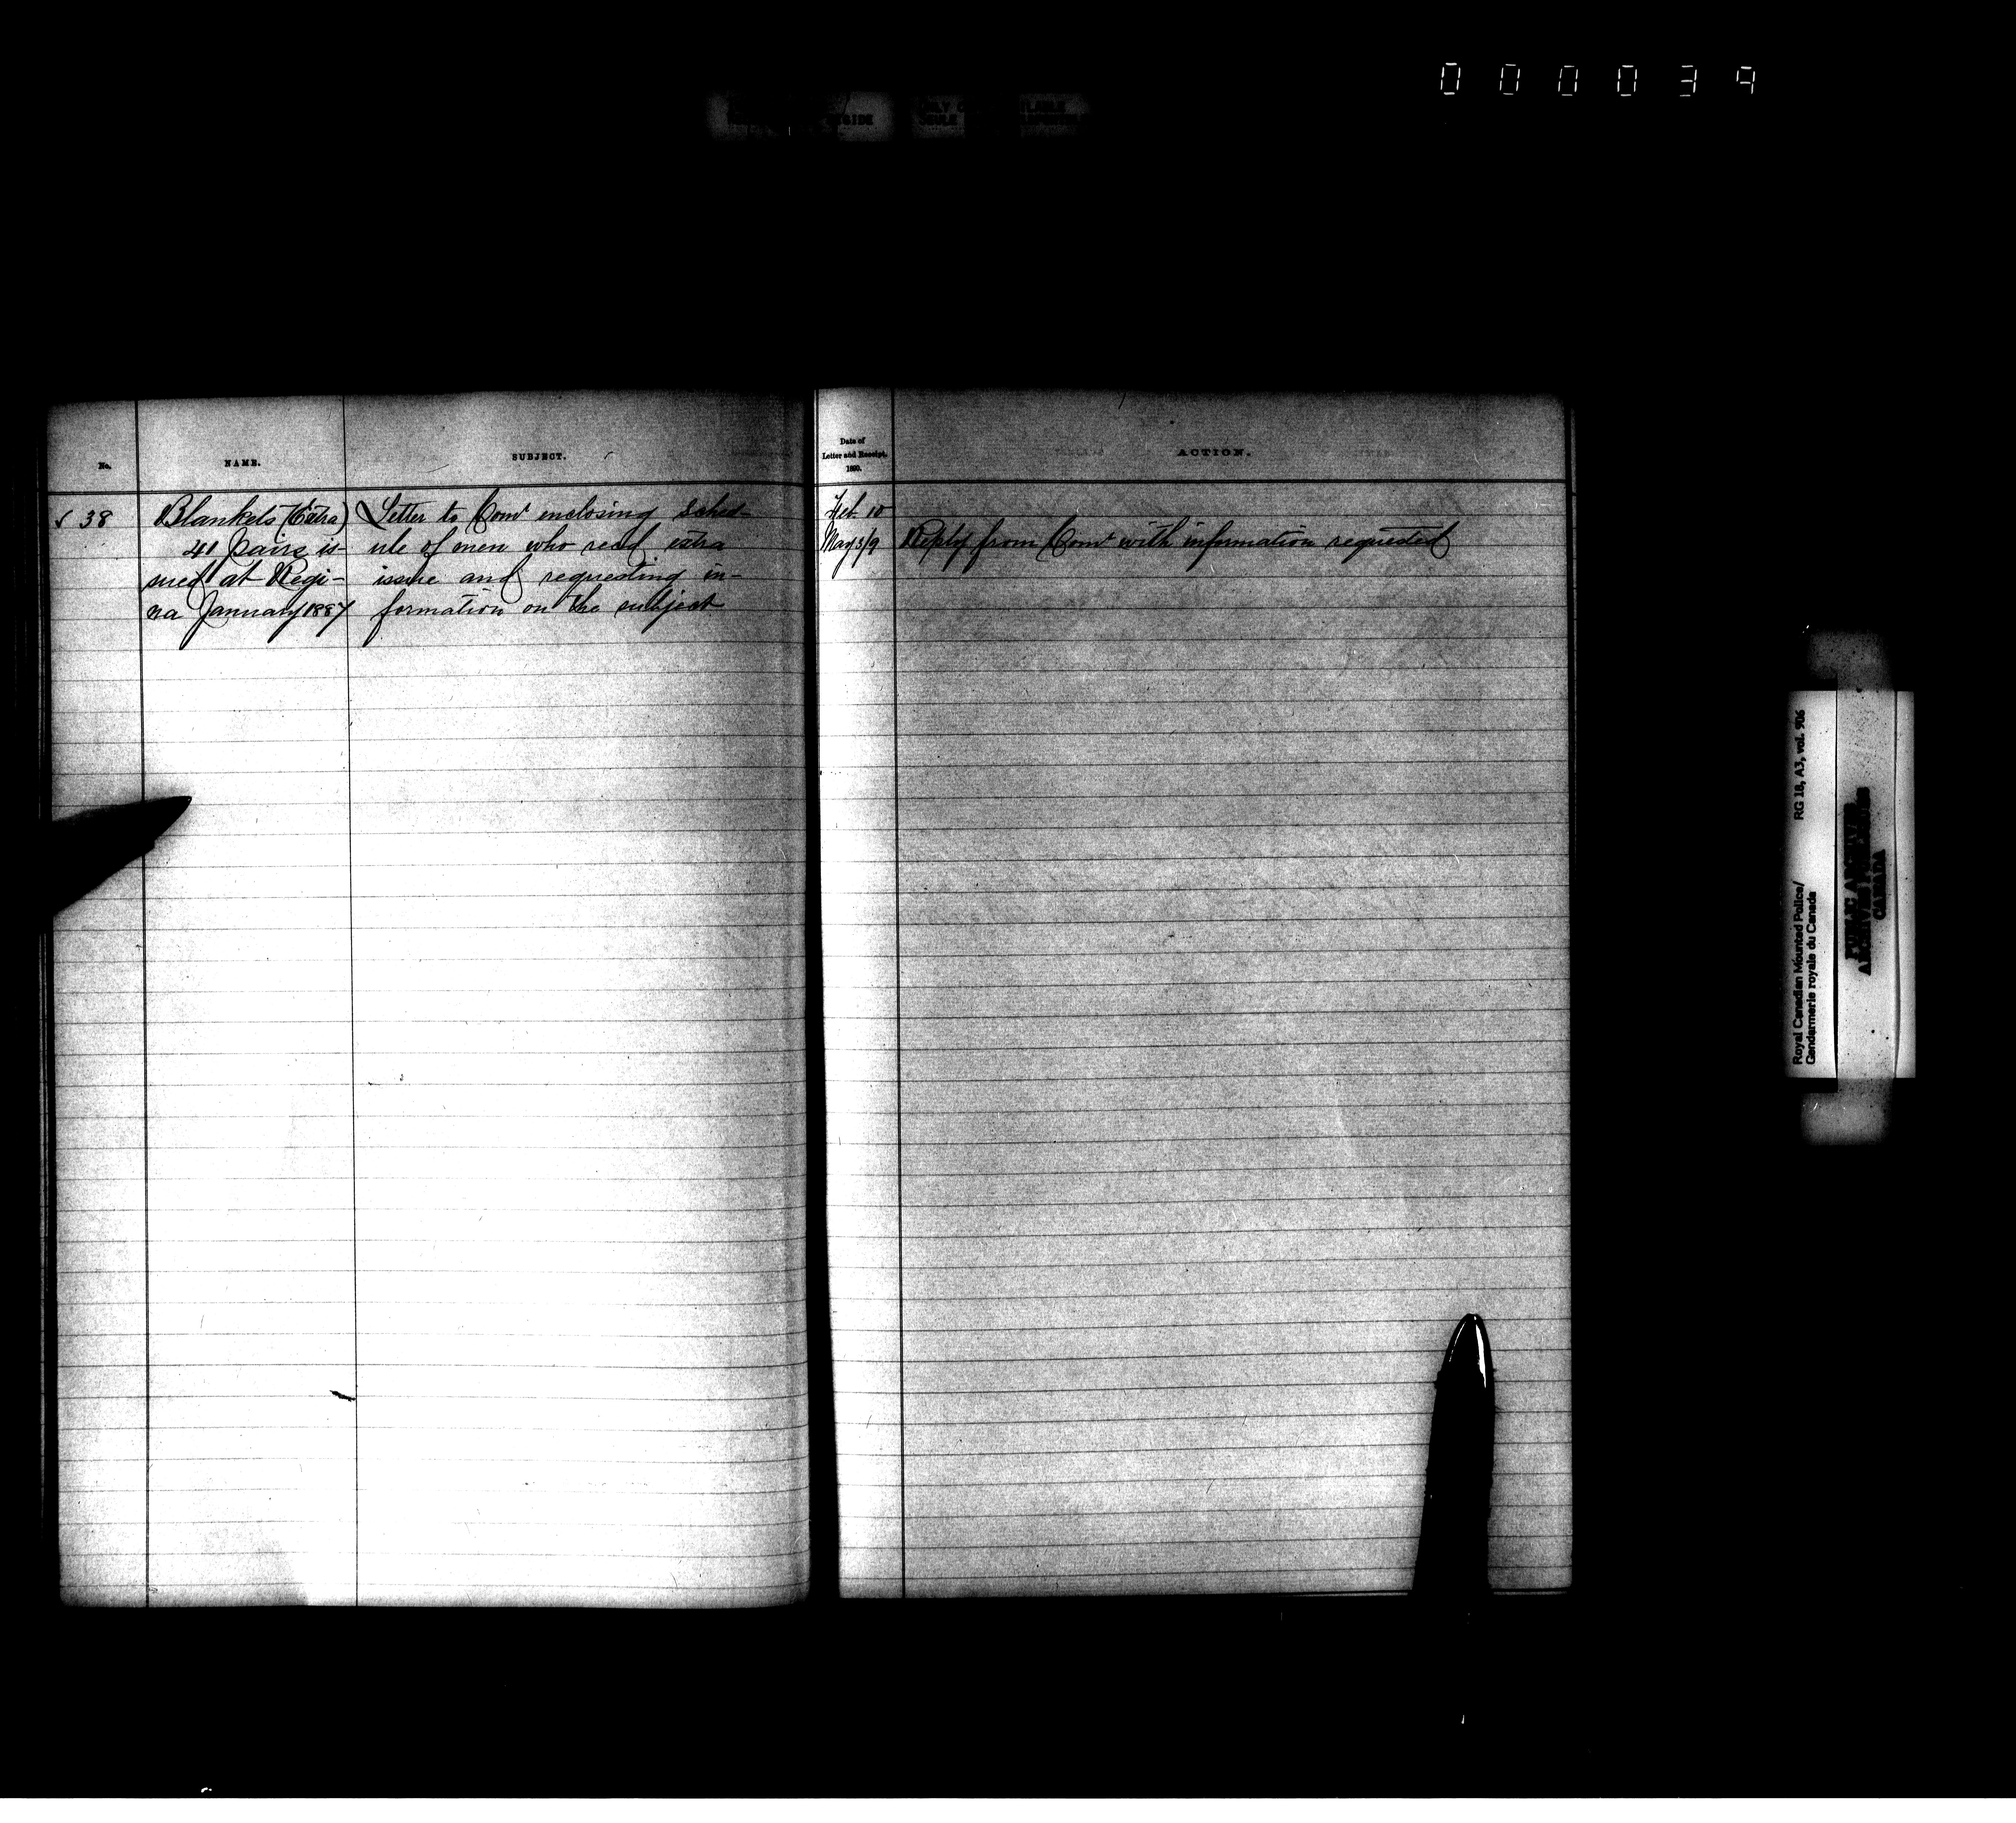 000039
No.
NAME.
SUBJECT.
Date of
Letter and Receipt.
1890.
ACTION.
✓ 38
Blankets (Extra)
41 pairs is-
sued at Regi-
na January 1887
Letter to Comr enclosing sched-
ule of men who recd extra
issue and requesting in-
formation on the subject
Feb. 10
May 3/9
Reply from Comr with information requested
Royal Canadian Mounted Police/
Gendarmerie royale du Canada
RG 18, A3, vol. 906
PUBLIC ARCHIVES
ARCHIVES PUBLIQUES
CANADA